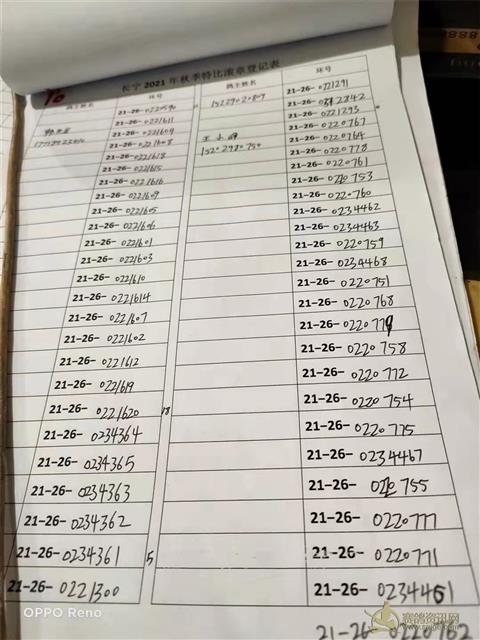 长宁2021年秋季特比滚章登记表
鸽主姓名 环号
21-26-0220590
21-26-0221611
21-26-0221608
21-26-0221618
21-26-0221615
21-26-0221616
21-26-0221609
21-26-0221605
21-26-0221606
21-26-0221601
21-26-0221603
21-26-0221610
21-26-0221614
21-26-0221607
21-26-0221602
21-26-0221612
21-26-0221619
21-26-0221620
18
21-26-0234364
21-26-0234365
21-26-0234363
21-26-0234362
21-26-0234361
5
21-26-0221300
鸽主姓名 环号
15229020809
21-26-0221291
21-26-0221293
21-26-0220767
21-26-0220764
15202980750
21-26-0220778
21-26-0220761
21-26-0220753
21-26-0220760
21-26-0234462
21-26-0234463
21-26-0220759
21-26-0234468
21-26-0220751
21-26-0220768
21-26-0220779
21-26-0220758
21-26-0220772
21-26-0220754
21-26-0220775
21-26-0234467
21-26-0220755
21-26-0220777
21-26-0220771
21-26-0234461
21-26-0220762
OPPO Reno